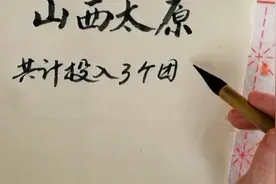 山西太原
共计投入3个团